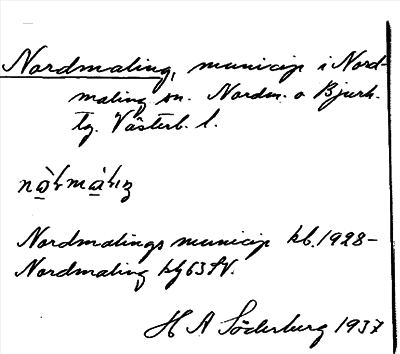 Nordmaling, municip i Nord-
maling sn. Nordm. o Bjurh.
tg. Västerb. l.
Nordmalings municip kb. 1928–
Nordmaling
H A Söderberg 1937